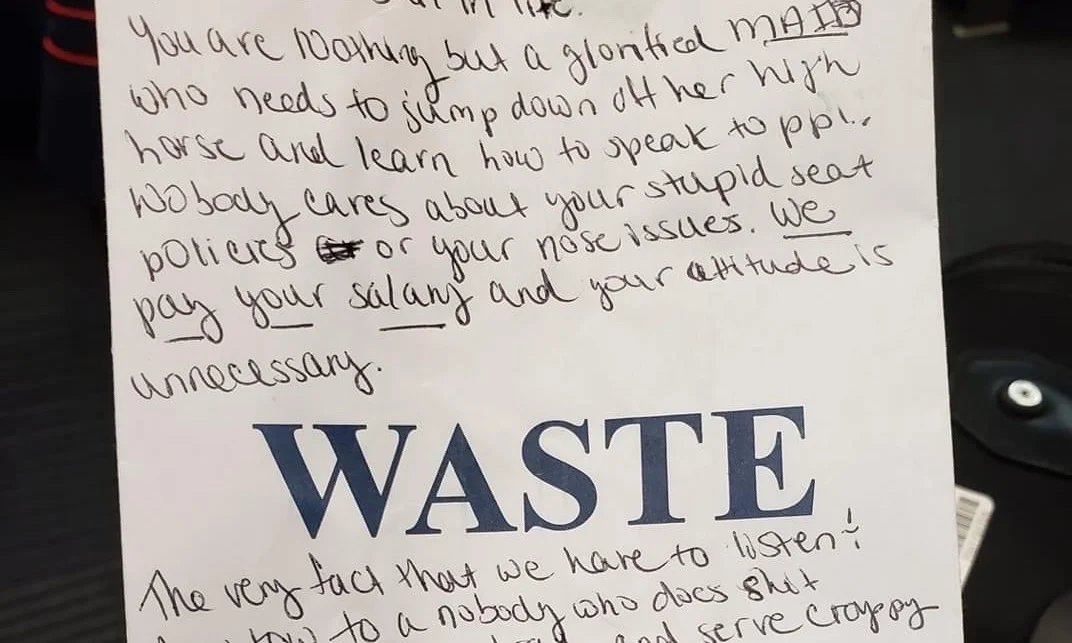 in life.
You are Nothing but a glorified MAID
who needs to jump down off her high
horse and learn how to speak to ppl.
Nobody cares about your stupid seat
policies or your nose issues. We
pay your salary and your attitude is
unnecessary.
WASTE
The very fact that we have to listen !
to a nobody who does shit
and serve crappy